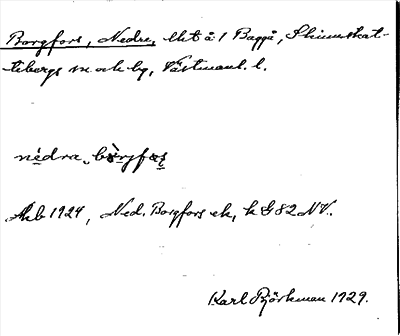 Borgfors, Nedre, lht å 1 Baggå, Skinnskat-
tebergs sn o. bg, Västmanl. l.
nèdra bòrgfɷʂ
Akb 1924, Ned. Borgfors ek, k G 82 NV.
Karl Björkman 1929.